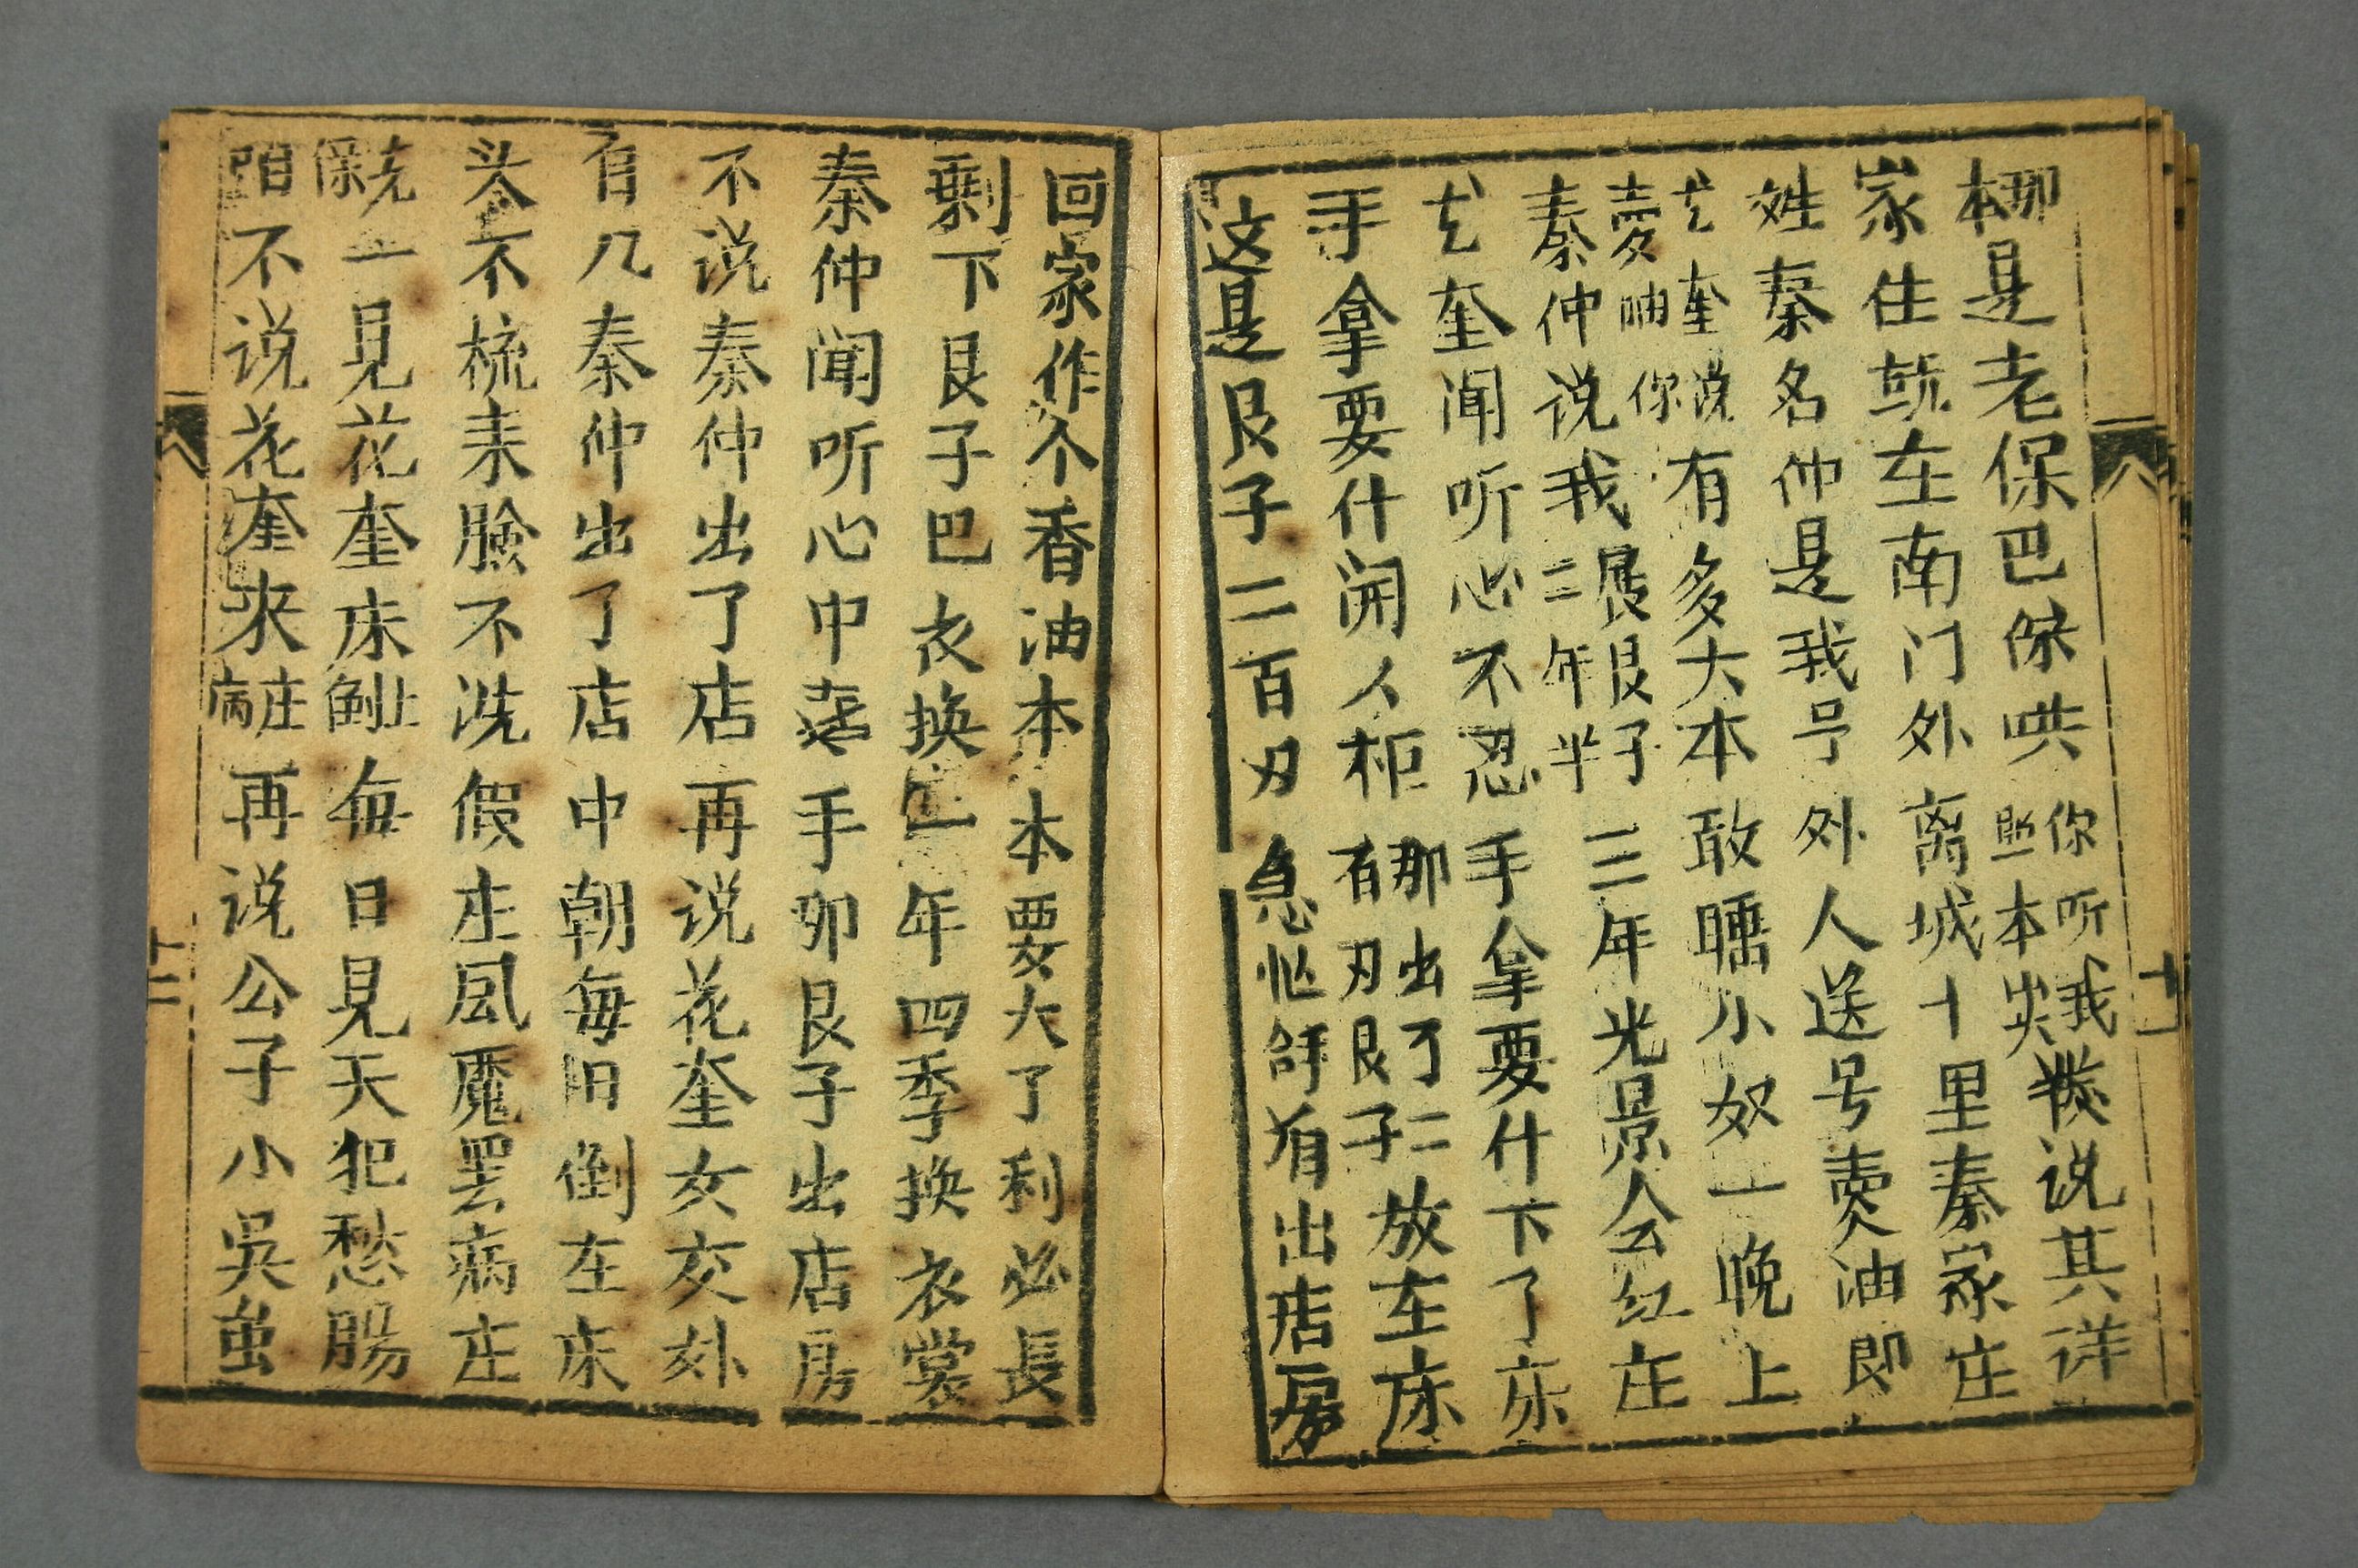 那本是老保巴保哄 你听我㸼说其详
家住就在南门外 离城十里秦家庄
姓秦名仲是我号 外人送号卖油郎
花奎说你有多大本 敢瞧小奴一晚上
秦仲说我二年半 三年光景会红庄
花奎闻听心不忍 手拿要什下了床
手拿要什開人柜 那出了二有刃艮子放在床
这是艮子二百刃 急忙有出店房
回家作个香油本 本要大了利必長
剩下艮子巴衣换 年四季换衣裳
秦仲闻听心中喜 手卯艮子出店房
不说秦仲出了店 再说花奎女交外
自几秦仲出了店 中朝每日倒在床
头不梳来臉不洗 假庄風魔罢病庄
保一見花奎床上倒 每日見天犯愁腸
咱不说花奎来庄病 再说公子小吳
八
十二
八
十一